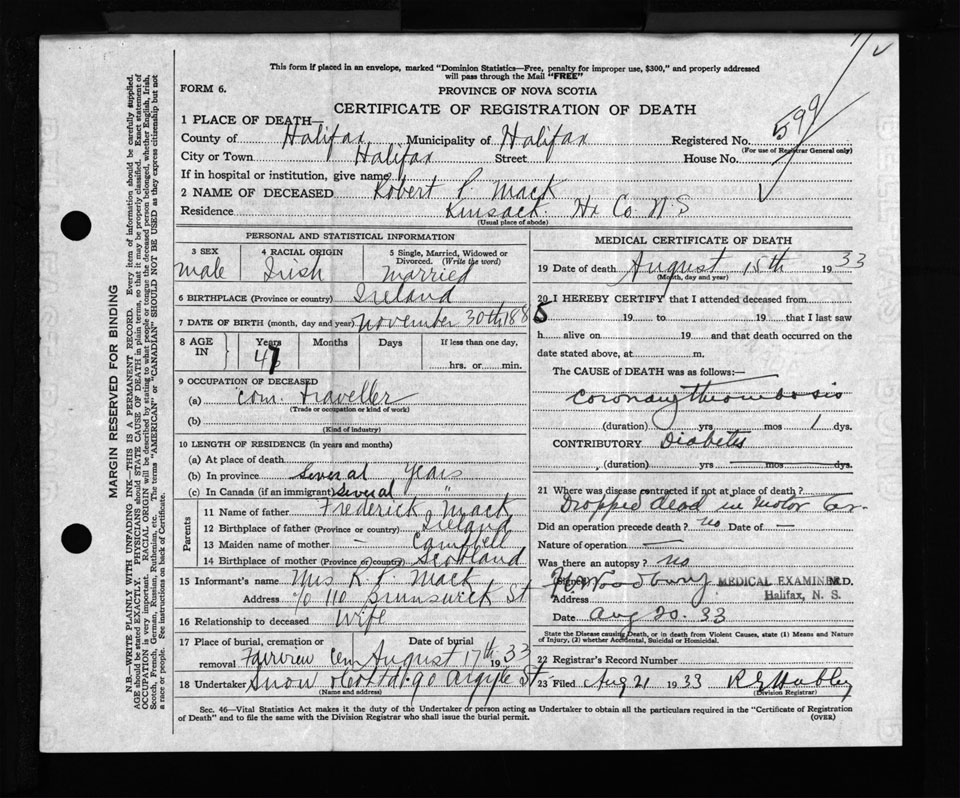 This form if placed in an envelope, marked "Dominion Statistics—Free, penalty for improper use, $300," and properly addressed
will pass through the Mail "FREE"
FORM 6.
PROVINCE OF NOVA SCOTIA
CERTIFICATE OF REGISTRATION OF DEATH
1 PLACE OF DEATH—
County of Halifax Municipality of Halifax Registered No. 599
(For use of Registrar General only)
City or Town Halifax Street House No.
If in hospital or institution, give name
2 NAME OF DECEASED Robert P. Mack
Residence Kinsack. Hx Co. N S
(Usual place of abode)
PERSONAL AND STATISTICAL INFORMATION
3 SEX 4 RACIAL ORIGIN 5 Single, Married, Widowed or
Divorced. (Write the word)
male Irish married
6 BIRTHPLACE (Province or country) Ireland
7 DATE OF BIRTH (month, day and year) November 30th 1885
8 AGE IN Years Months Days If less than one day,
47 hrs. or min.
9 OCCUPATION OF DECEASED
(a) Com. traveller
(Trade or occupation or kind of work)
(b)
(Kind of industry)
10 LENGTH OF RESIDENCE (in years and months)
(a) At place of death
(b) In province Several Years
(c) In Canada (if an immigrant) Several "
Parents
11 Name of father Frederick Mack
12 Birthplace of father (Province or country) Ireland
13 Maiden name of mother — Campbell
14 Birthplace of mother (Province or country) Scotland
15 Informant's name Mrs R. P. Mack
Address c/o 110 Brunswick St
16 Relationship to deceased Wife
17 Place of burial, cremation or Date of burial
removal Fairview Cem August 17th 1933
18 Undertaker Snow 90 Argyle St.
(Name and address)
MEDICAL CERTIFICATE OF DEATH
19 Date of death August 15th 1933
(Month, day and year)
20 I HEREBY CERTIFY that I attended deceased from
19 to 19 that I last saw
h alive on 19 and that death occurred on the
date stated above, at m.
The CAUSE of DEATH was as follows:—
Coronary thrombosis
(duration) yrs mos 1 dys.
CONTRIBUTORY Diabetes
(duration) yrs mos dys.
21 Where was disease contracted if not at place of death?
Dropped dead in motor Car.
Did an operation precede death? no Date of —
Nature of operation —
Was there an autopsy? no
Signed Woodbury MEDICAL EXAMINER M.D.
Address Halifax, N. S.
Date Aug 20. 33
State the Disease causing Death, or in death from Violent Causes, state (1) Means and Nature
of Injury, (2) whether Accidental, Suicidal or Homicidal.
22 Registrar's Record Number
23 Filed Aug 21 1933 Hubley
(Division Registrar)
Sec. 46—Vital Statistics Act makes it the duty of the Undertaker or person acting as Undertaker to obtain all the particulars required in the "Certificate of Registration
of Death" and to file the same with the Division Registrar who shall issue the burial permit. (OVER)
MARGIN RESERVED FOR BINDING
N.B.—WRITE PLAINLY WITH UNFADING INK—THIS IS A PERMANENT RECORD. Every item of information should be carefully supplied.
AGE should be stated EXACTLY. PHYSICIANS should STATE CAUSE OF DEATH in plain terms, so that it may be properly classified. Exact statement of
OCCUPATION is very important. RACIAL ORIGIN will be described by stating to what people or tongue the deceased person belonged, whether English, Irish,
Scotch, French, German, Russian, Ruthenian, etc. The terms "AMERICAN" or "CANADIAN" SHOULD NOT BE USED as they express citizenship but not
a race or people. See instructions on back of Certificate.